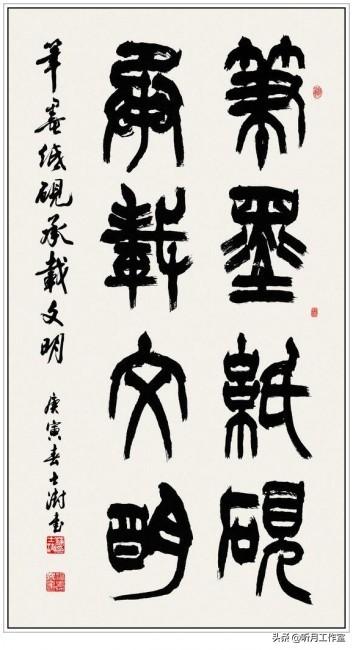 筆墨紙硯
承載文明
筆墨紙硯承載文明
庚寅春士澍書
头条@听月工作室